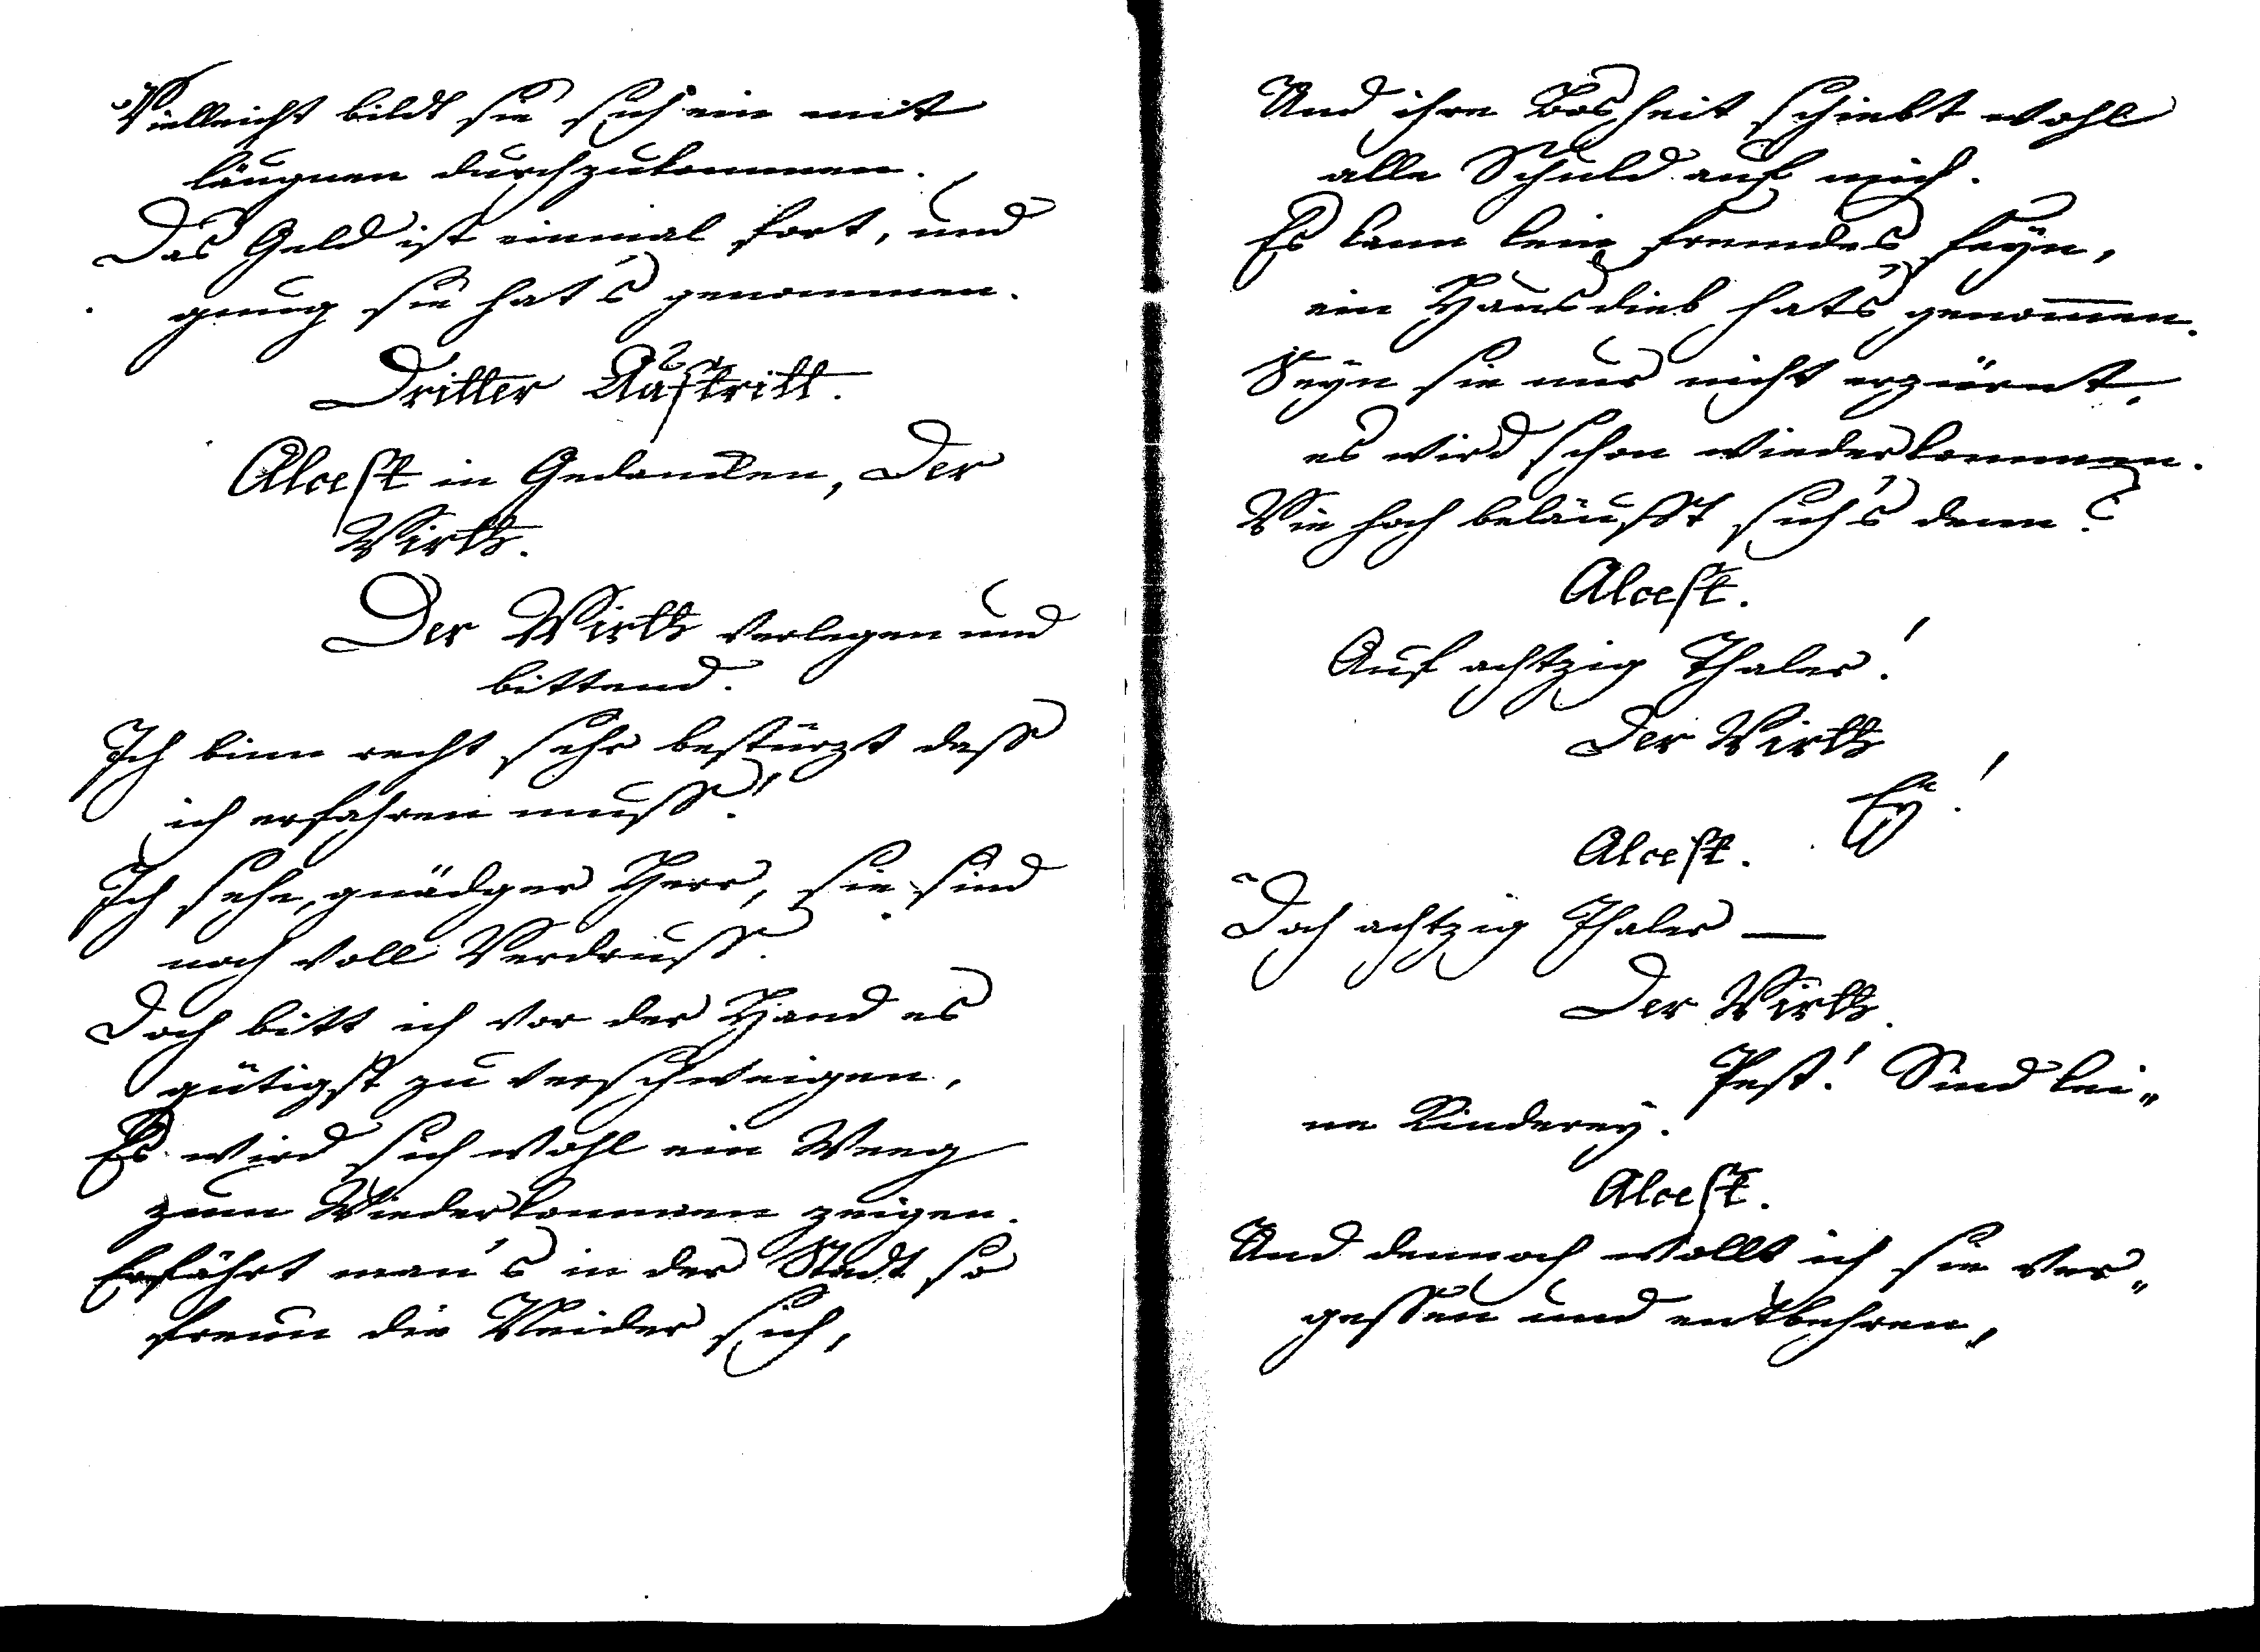 Vielleicht bildt sie sich ein mit
läugnen durchzukommen.
Das Geld ist einmal fort, und
genug sie hat's genommen.
Dritter Auftritt.
Alcest in Gedancken, Der
Wirth.
Der Wirth verlegen und
bittend.
Ich binn recht sehr bestürzt dass
ich erfahren muss!
Ich sehe, gnädger Herr, sie sind
noch voll Verdruss.
Doch bitt ich vor der Hand es
gütigst zu verschweigen,
Es wird sich wohl ein Weeg
zum Wiederkommen zeigen.
Erfährt man's in der Stadt so
freun die Neider sich,
Und ihre Bosheit schiebt wohl
alle Schuld auf mich.
Es kann kein fremder seyn,
ein Hausdieb hat's genom̅en.
Seyn sie nur nicht erzürnt,
es wird schon wiederkommen.
Wie hoch beläufft sich's denn?
Alcest.
Auf achtzig Thaler!
Der Wirth
Ey!
Alcest.
Doch achtzig Thaler —
Der Wirth.
Pest! Sind kei„
ne Kinderey.
Alcest.
Und dennoch wollt ich sie ver„
gessen und entbehren,